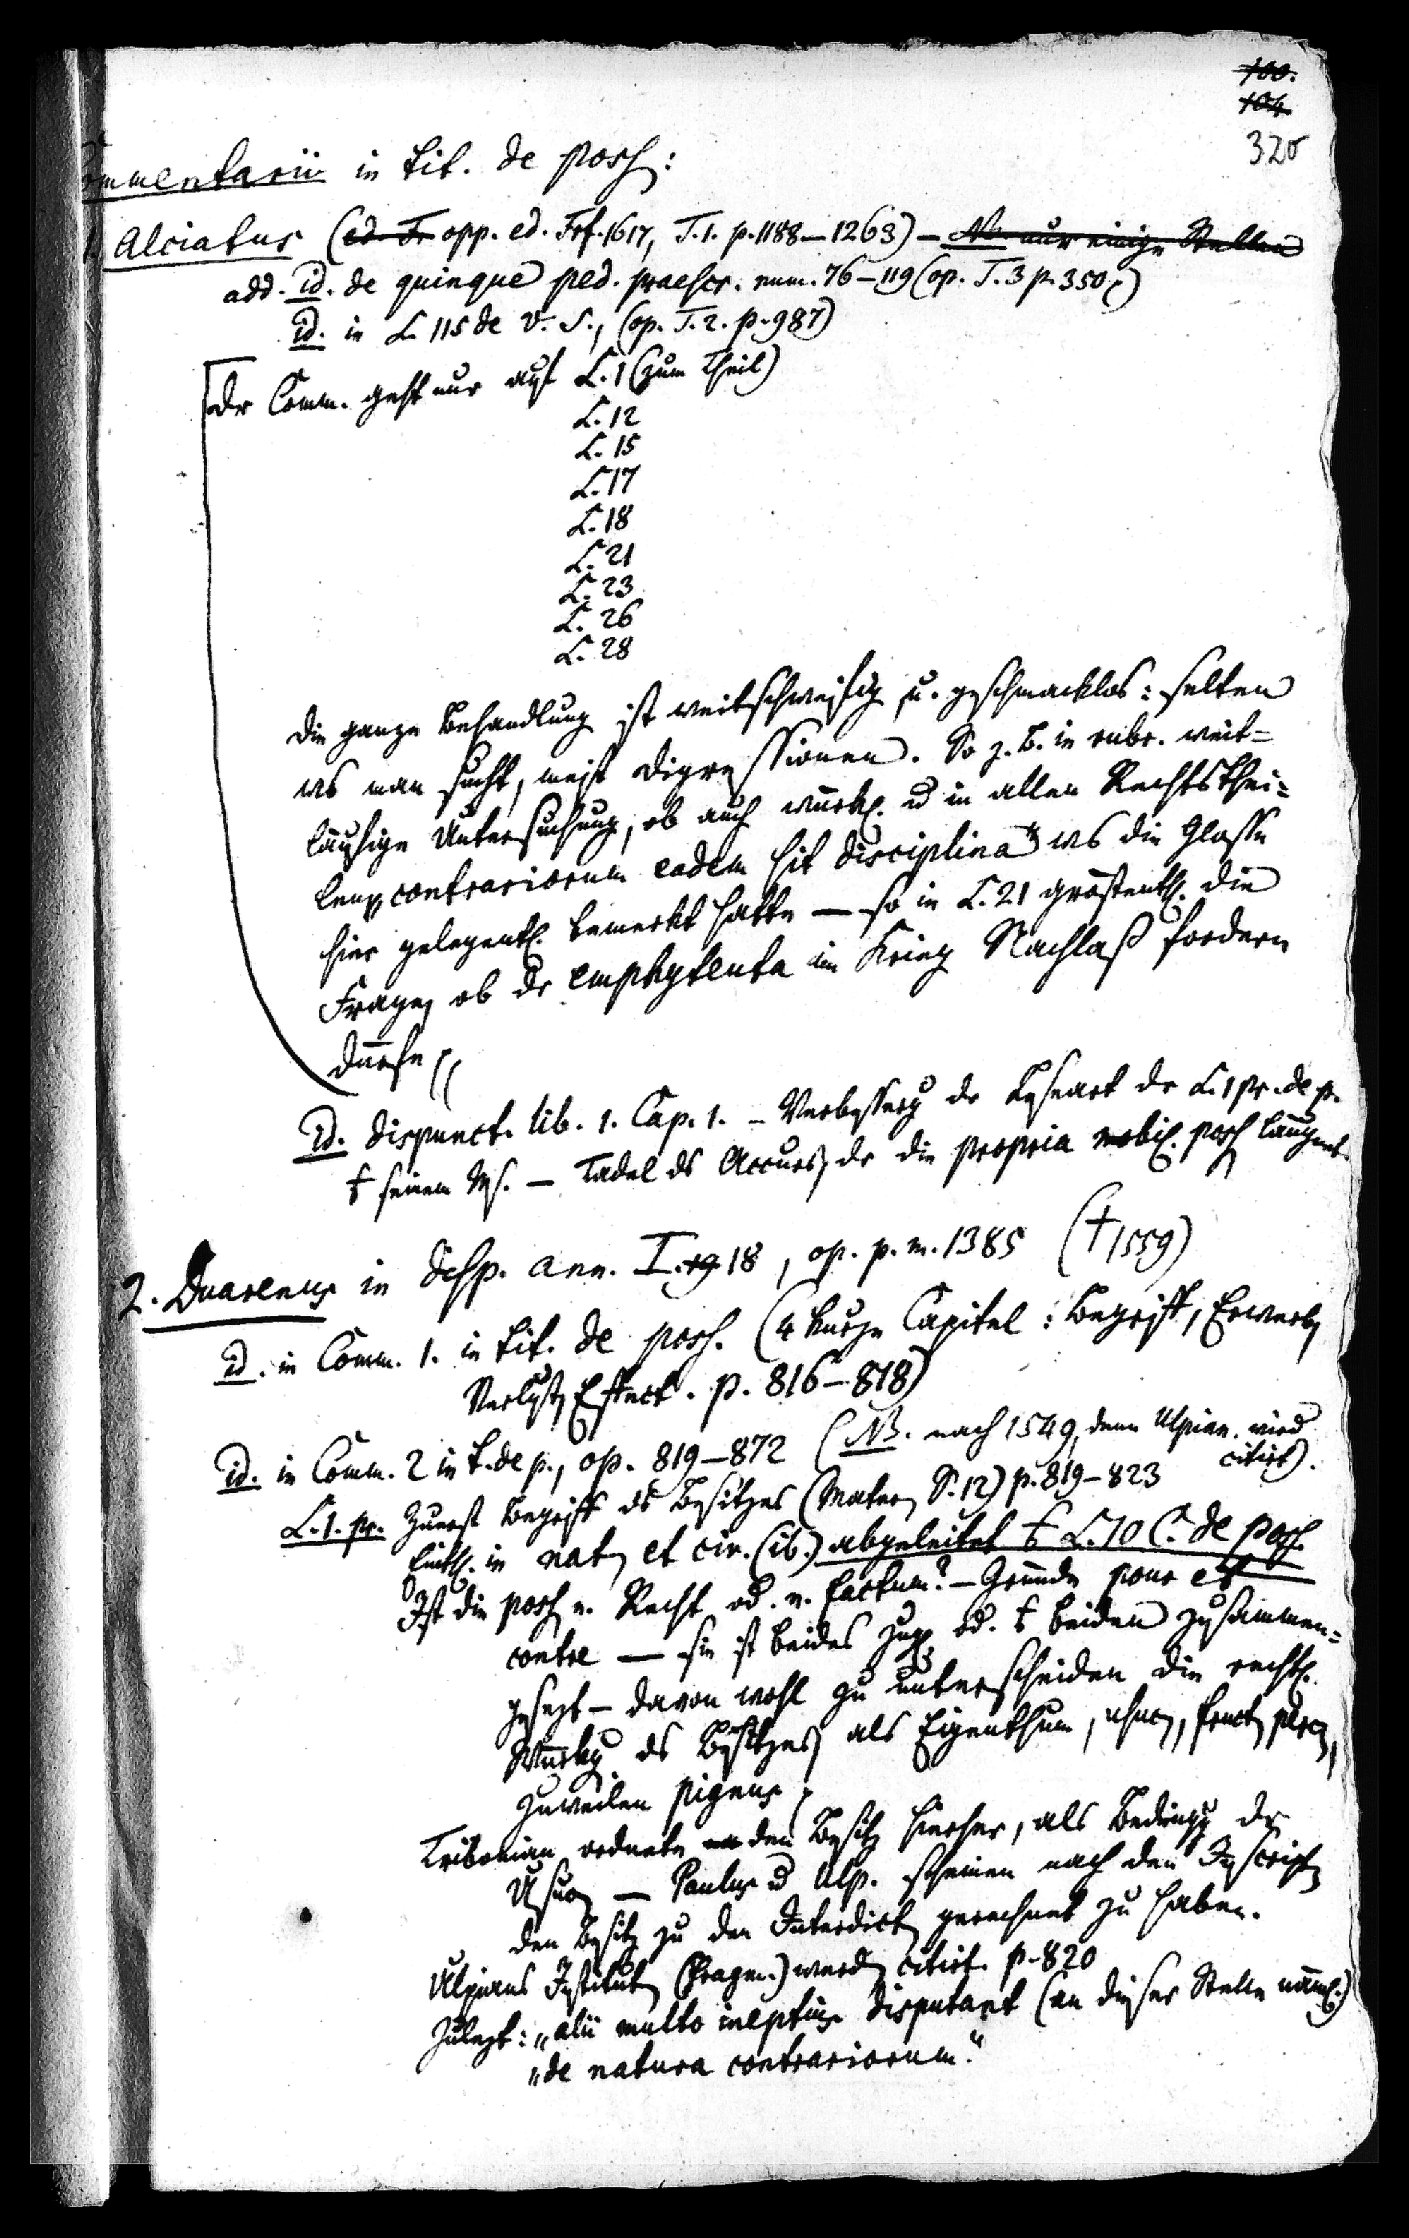 100.
104.
320
Commentarii in tit. de poss:
1. Alciatus (ed. Fr. opp. ed. Frf. 1617, T. 1. p. 1188–1263) – NB nur einige Stellen
add. id. de quinque ped. praescr. num. 76–119 (op. T. 3 p. 350)
id. in L. 115 de V. S., (op. T. 2. p. 987)
Der Comm. geht nur auf L. 1 (zum Theil)
L. 12
L. 15
L. 17
L. 18
L. 21
L. 23
L. 26
L. 28
Die ganze Behandlung ist weitschweifig u. geschmacklos: selten
was man sucht, meist Digressionen. So z. B. in rubr. weit=
läufige Untersuchung, ob auch würkl. u in allen Rechtsthei=
len contrariorum eadem sit disciplina was die Glosse
hier gelegentl. bemerkt hatte – so in L. 21 gröstenth. die
Frage, ob der emphyteuta im Krieg Nachlaß fordern
dürfe
id. dispunct. lib. 1. Cap. 1. – Verbesserg der Leseart der L. 1 pr. de p.
seinem Ms. – Tadel des Accurs, der die propria poss läugnet.
2. Duarenus in disp. ann. I. 19 18, op. p. m. 1385 (†1559)
id. in Comm. 1. in tit. de poss. (4 kurze Capitel: Begriff, Erwerb,
Verlust, Effect. p. 816–818)
id. in Comm. 2 in t. de p., op. 819–872 (NB. nach 1549, denn Ulpian. wird
citirt).
L. 1. pr. Zuerst Begriff des Besitzes (Mater, S. 12) p. 819–823
Einth. in nat, et civ. (ib.) abgeleitet L. 10 C. de poss.
Ist die poss n. Recht od. n. factum? – Gründe pour et
contre – sie ist beides zugl. od. beiden zusammen=
gesezt – davon wohl zu unterscheiden die rechtl.
Würkg des Besitzes, als Eigenthum, usuc, fruct, perc,
zuweilen pignus
Tribonian ordnete den Besitz hierher, als Bedingg der
Usuc – Paulus u Ulp. scheinen nach den Inscript
den Besitz zu den Interdict, gerechnet zu haben.
Ulpians Institut, (Fragm.) werd, citirt. p. 820
Zulezt: „alii multo ineptius disputant (an dieser Stelle näml.)
„de natura contrariorum."